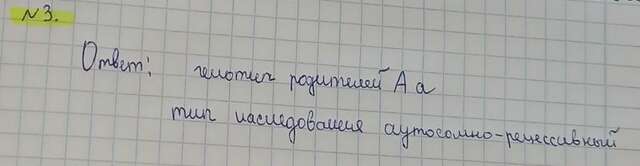 №3.
Ответ: генотип родителей Аа
тип наследования аутосомно-рецессивный